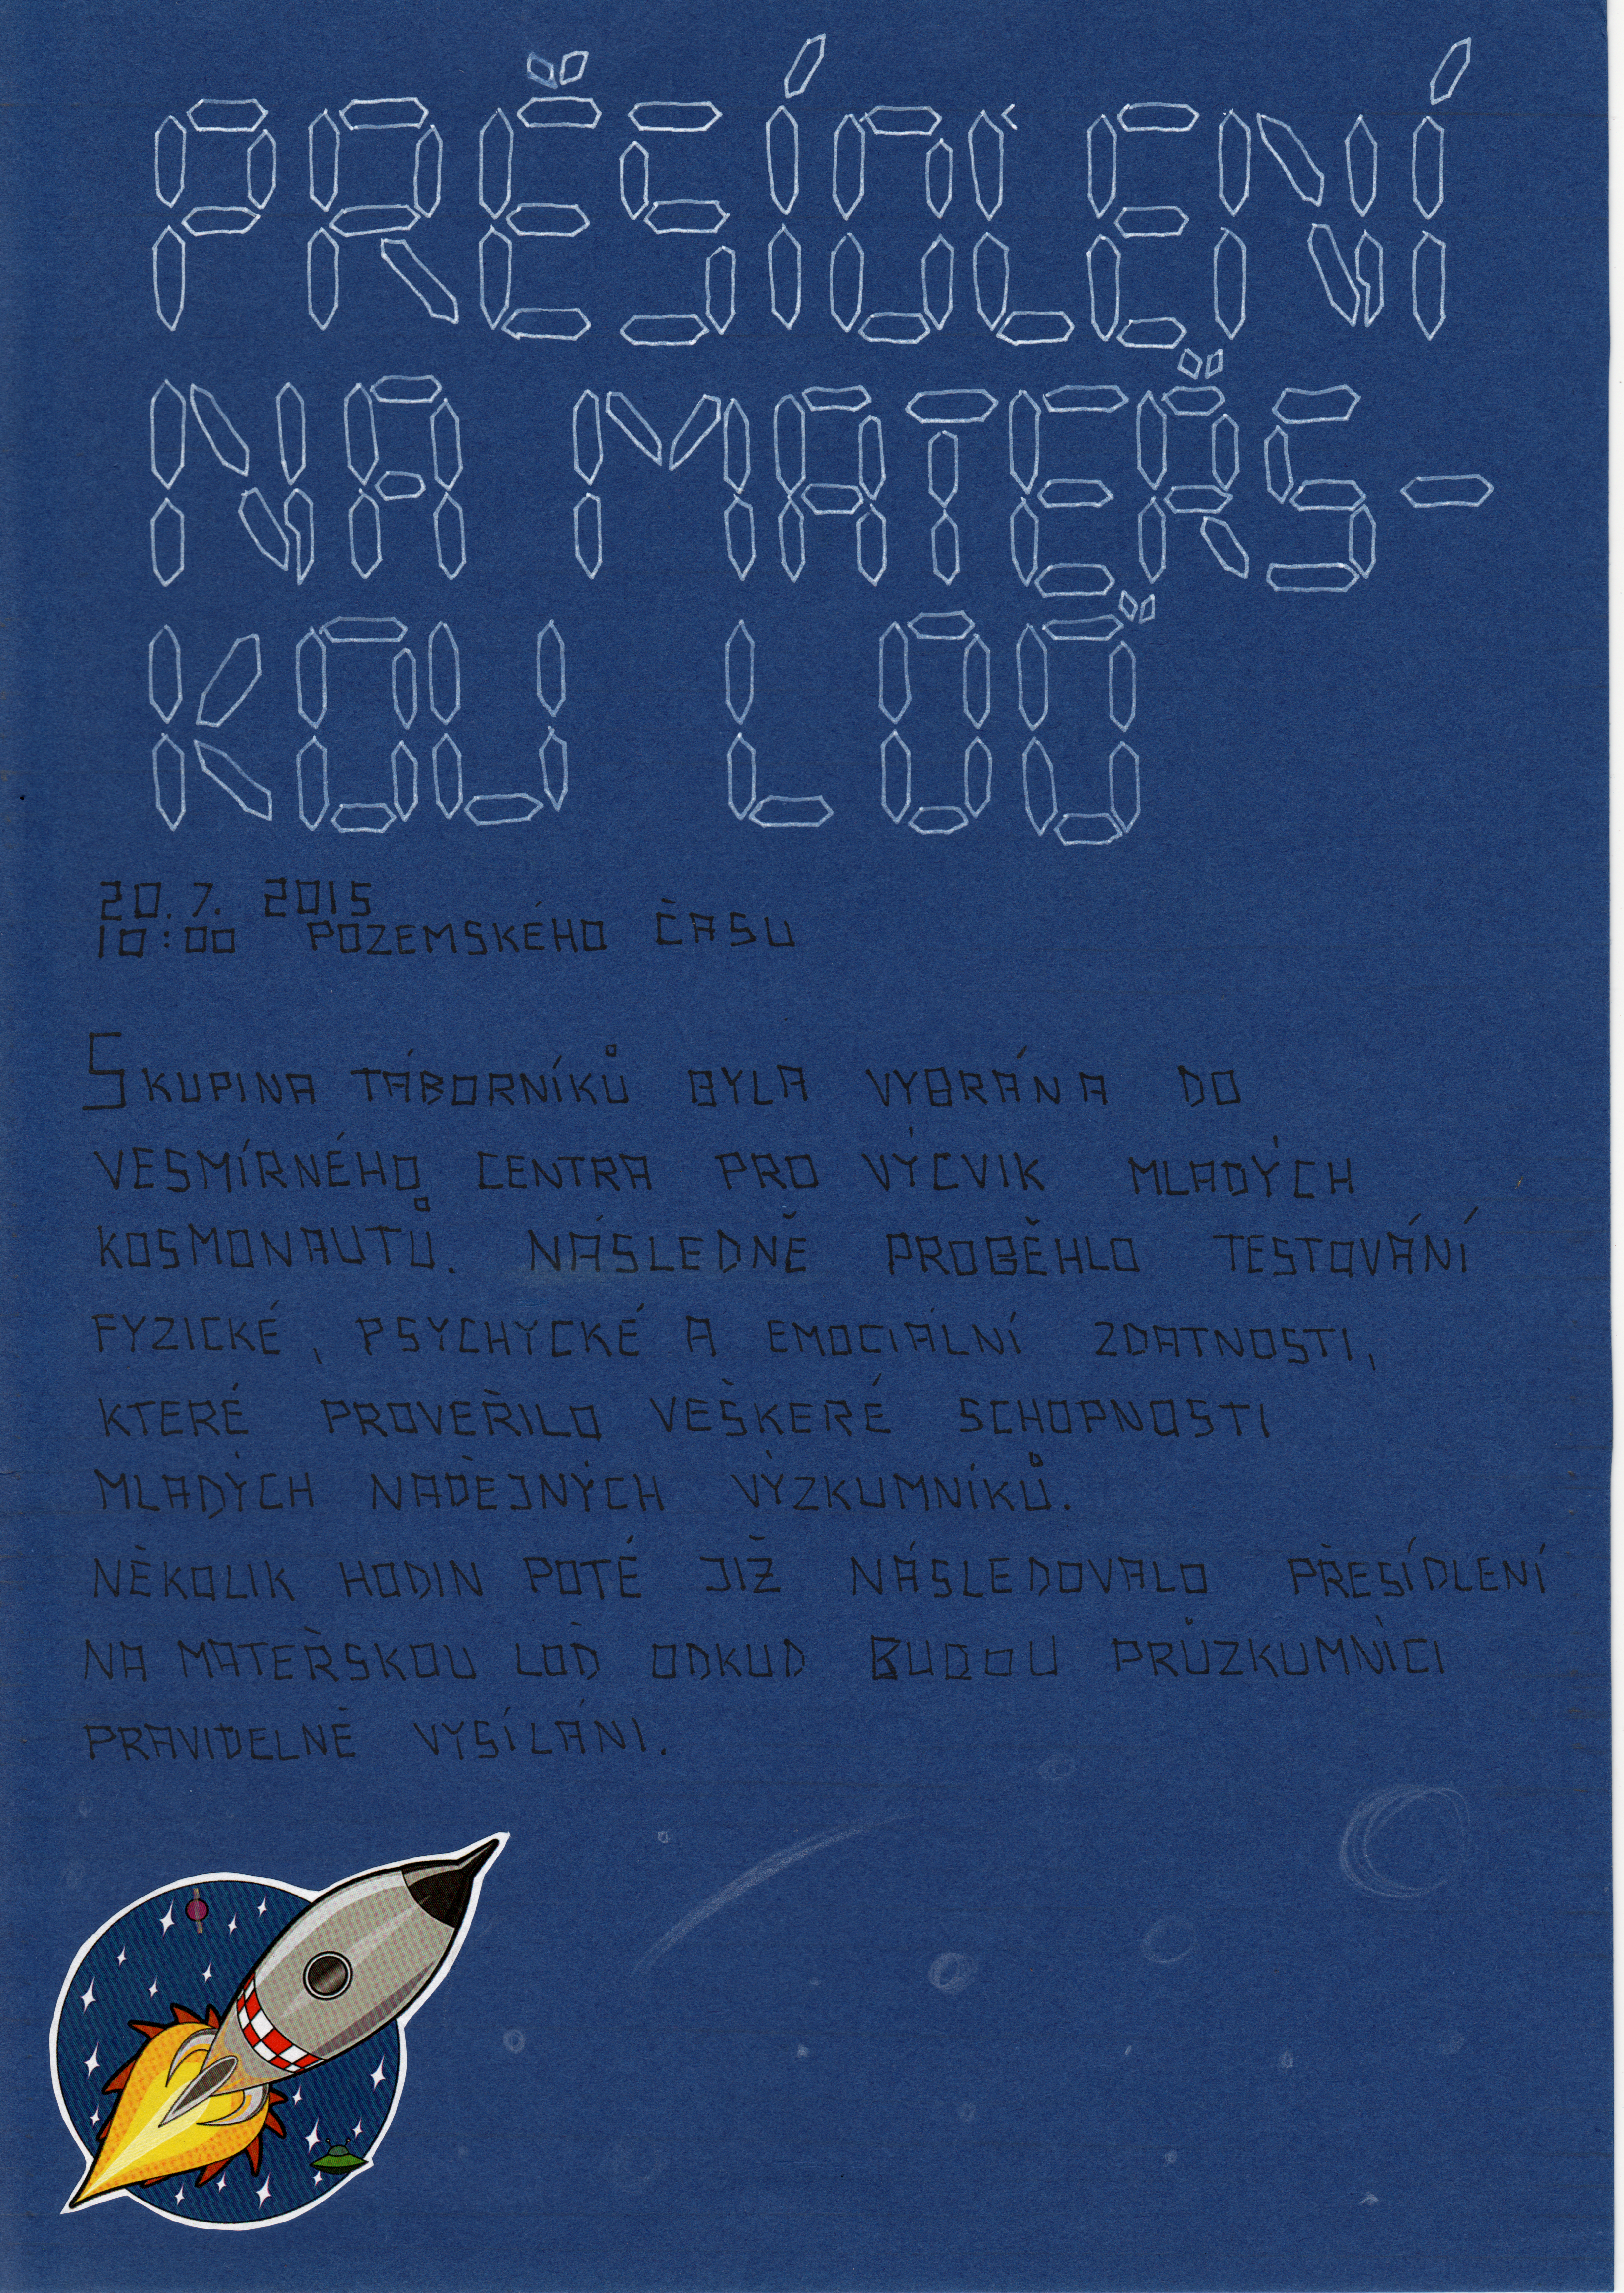 PŘESÍDLENÍ
NA MATEŘS-
KOU LOĎ
20.7. 2015
10:00 POZEMSKÉHO ČASU
SKUPINA TÁBORNÍKŮ BYLA VYBRÁNA DO
VESMÍRNÉHO CENTRA PRO VÝCVIK MLADÝCH
KOSMONAUTŮ. NÁSLEDNĚ PROBĚHLO TESTOVÁNÍ
FYZICKÉ, PSYCHYCKÉ A EMOCIÁLNÍ ZDATNOSTI,
KTERÉ PROVEŘILO VEŠKERÉ SCHOPNOSTI
MLADÝCH NADĚJNÝCH VÝZKUMNÍKŮ.
NĚKOLIK HODIN POTÉ JIŽ NÁSLEDOVALO PŘESÍDLENÍ
NA MATEŘSKOU LOĎ ODKUD BUDOU PRŮZKUMNÍCI
PRAVIDELNĚ VYSÍLÁNI.